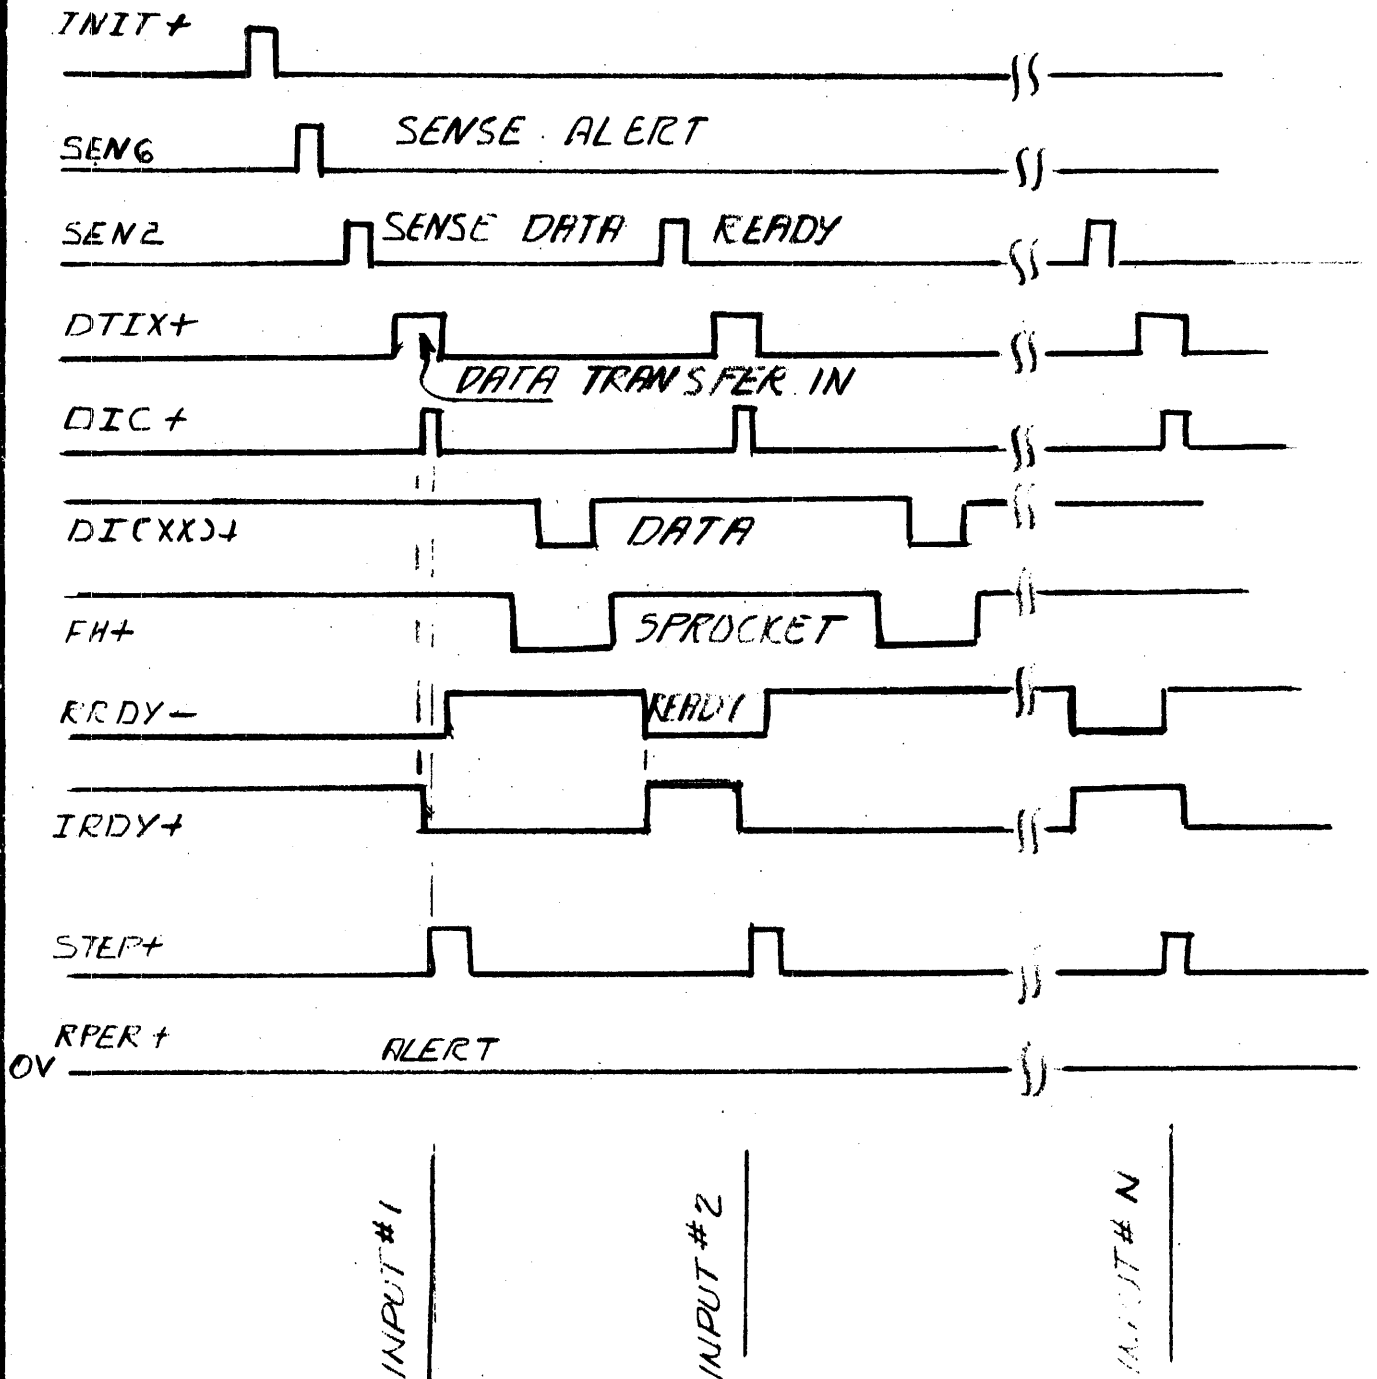 INIT+
SEN6 SENSE ALERT
SEN2 SENSE DATA READY
DTIX+
DATA TRANSFER IN
DIC+
DI(XX)+ DATA
FH+ SPROCKET
RRDY- READY
IRDY+
STEP+
RPER+
0V ALERT
INPUT#1
INPUT#2
INPUT# N